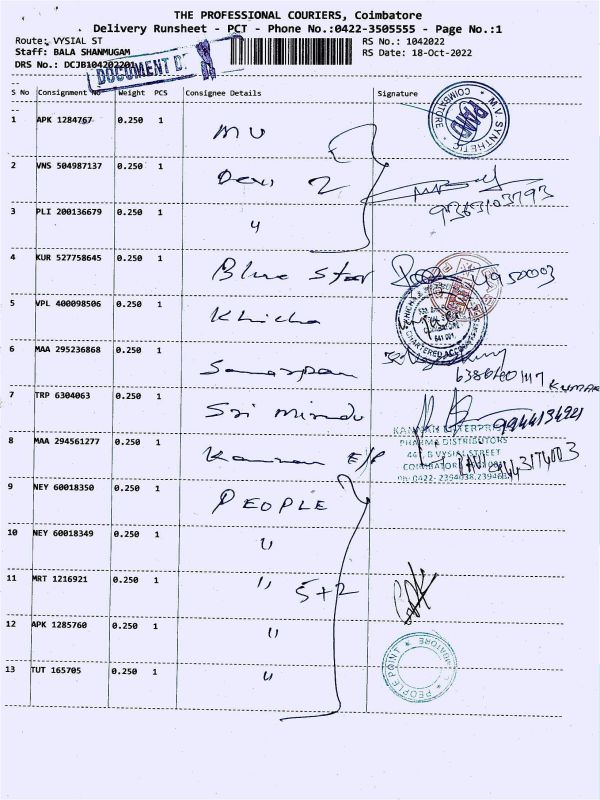 THE PROFESSIONAL COURIERS, Coimbatore
Delivery Runsheet - PCT - Phone No.:0422-3505555 - Page No.:1
Route: VYSIAL ST RS No.: 1042022
Staff: BALA SHANMUGAM RS Date: 18-Oct-2022
DRS No.: DCJB104202201
DOCUMENT
S No Consignment No Weight PCS Consignee Details Signature
1 APK 1284767 0.250 1 MV
COIMBATORE M.V. SYNTHETIC
2 VNS 504987137 0.250 1 Devi 2
9363103793
3 PLI 200136679 0.250 1 "
4 KUR 527758645 0.250 1 Blue Star
5 VPL 400098506 0.250 1 Khicha
CHARTERED
641 001
6 MAA 295236868 0.250 1
KUMAR
7 TRP 6304063 0.250 1 Sri
9944134921
KANNAN ENTERPRISES
PHARMA DISTRIBUTORS
8 MAA 294561277 0.250 1 Kannan E/P
VYSIAL STREET
COIMBATORE
Ph: 0422-2394638,
9 NEY 60018350 0.250 1 PEOPLE
10 NEY 60018349 0.250 1 "
11 MRT 1216921 0.250 1 " 5+2
12 APK 1285760 0.250 1 "
13 TUT 165705 0.250 1 "
PEOPLE POINT COIMBATORE